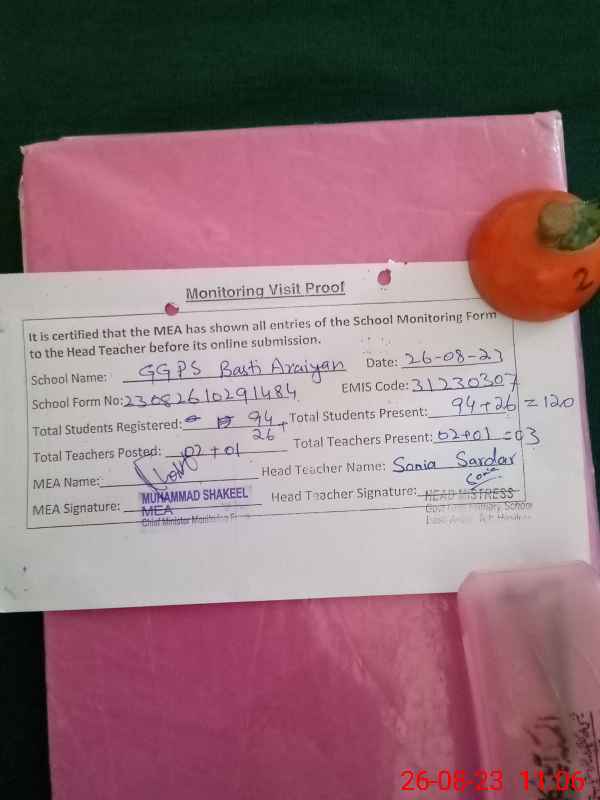 Monitoring Visit Proof
It is certified that the MEA has shown all entries of the School Monitoring Form
to the Head Teacher before its online submission.
School Name: GGPS Basti Araiyan Date: 26-08-23
School Form No: 23082610291484 EMIS Code: 31230307
Total Students Registered: 94 + 26 Total Students Present: 94+26 = 120
Total Teachers Posted: 02 + 01 Total Teachers Present: 02+01 = 03
MEA Name: Head Teacher Name: Sonia Sardar
MEA Signature: MUHAMMAD SHAKEEL Head Teacher Signature: Sonia
MEA HEAD MISTRESS
Chief Minister Monitoring Primary School
2
26-08-23 11:06